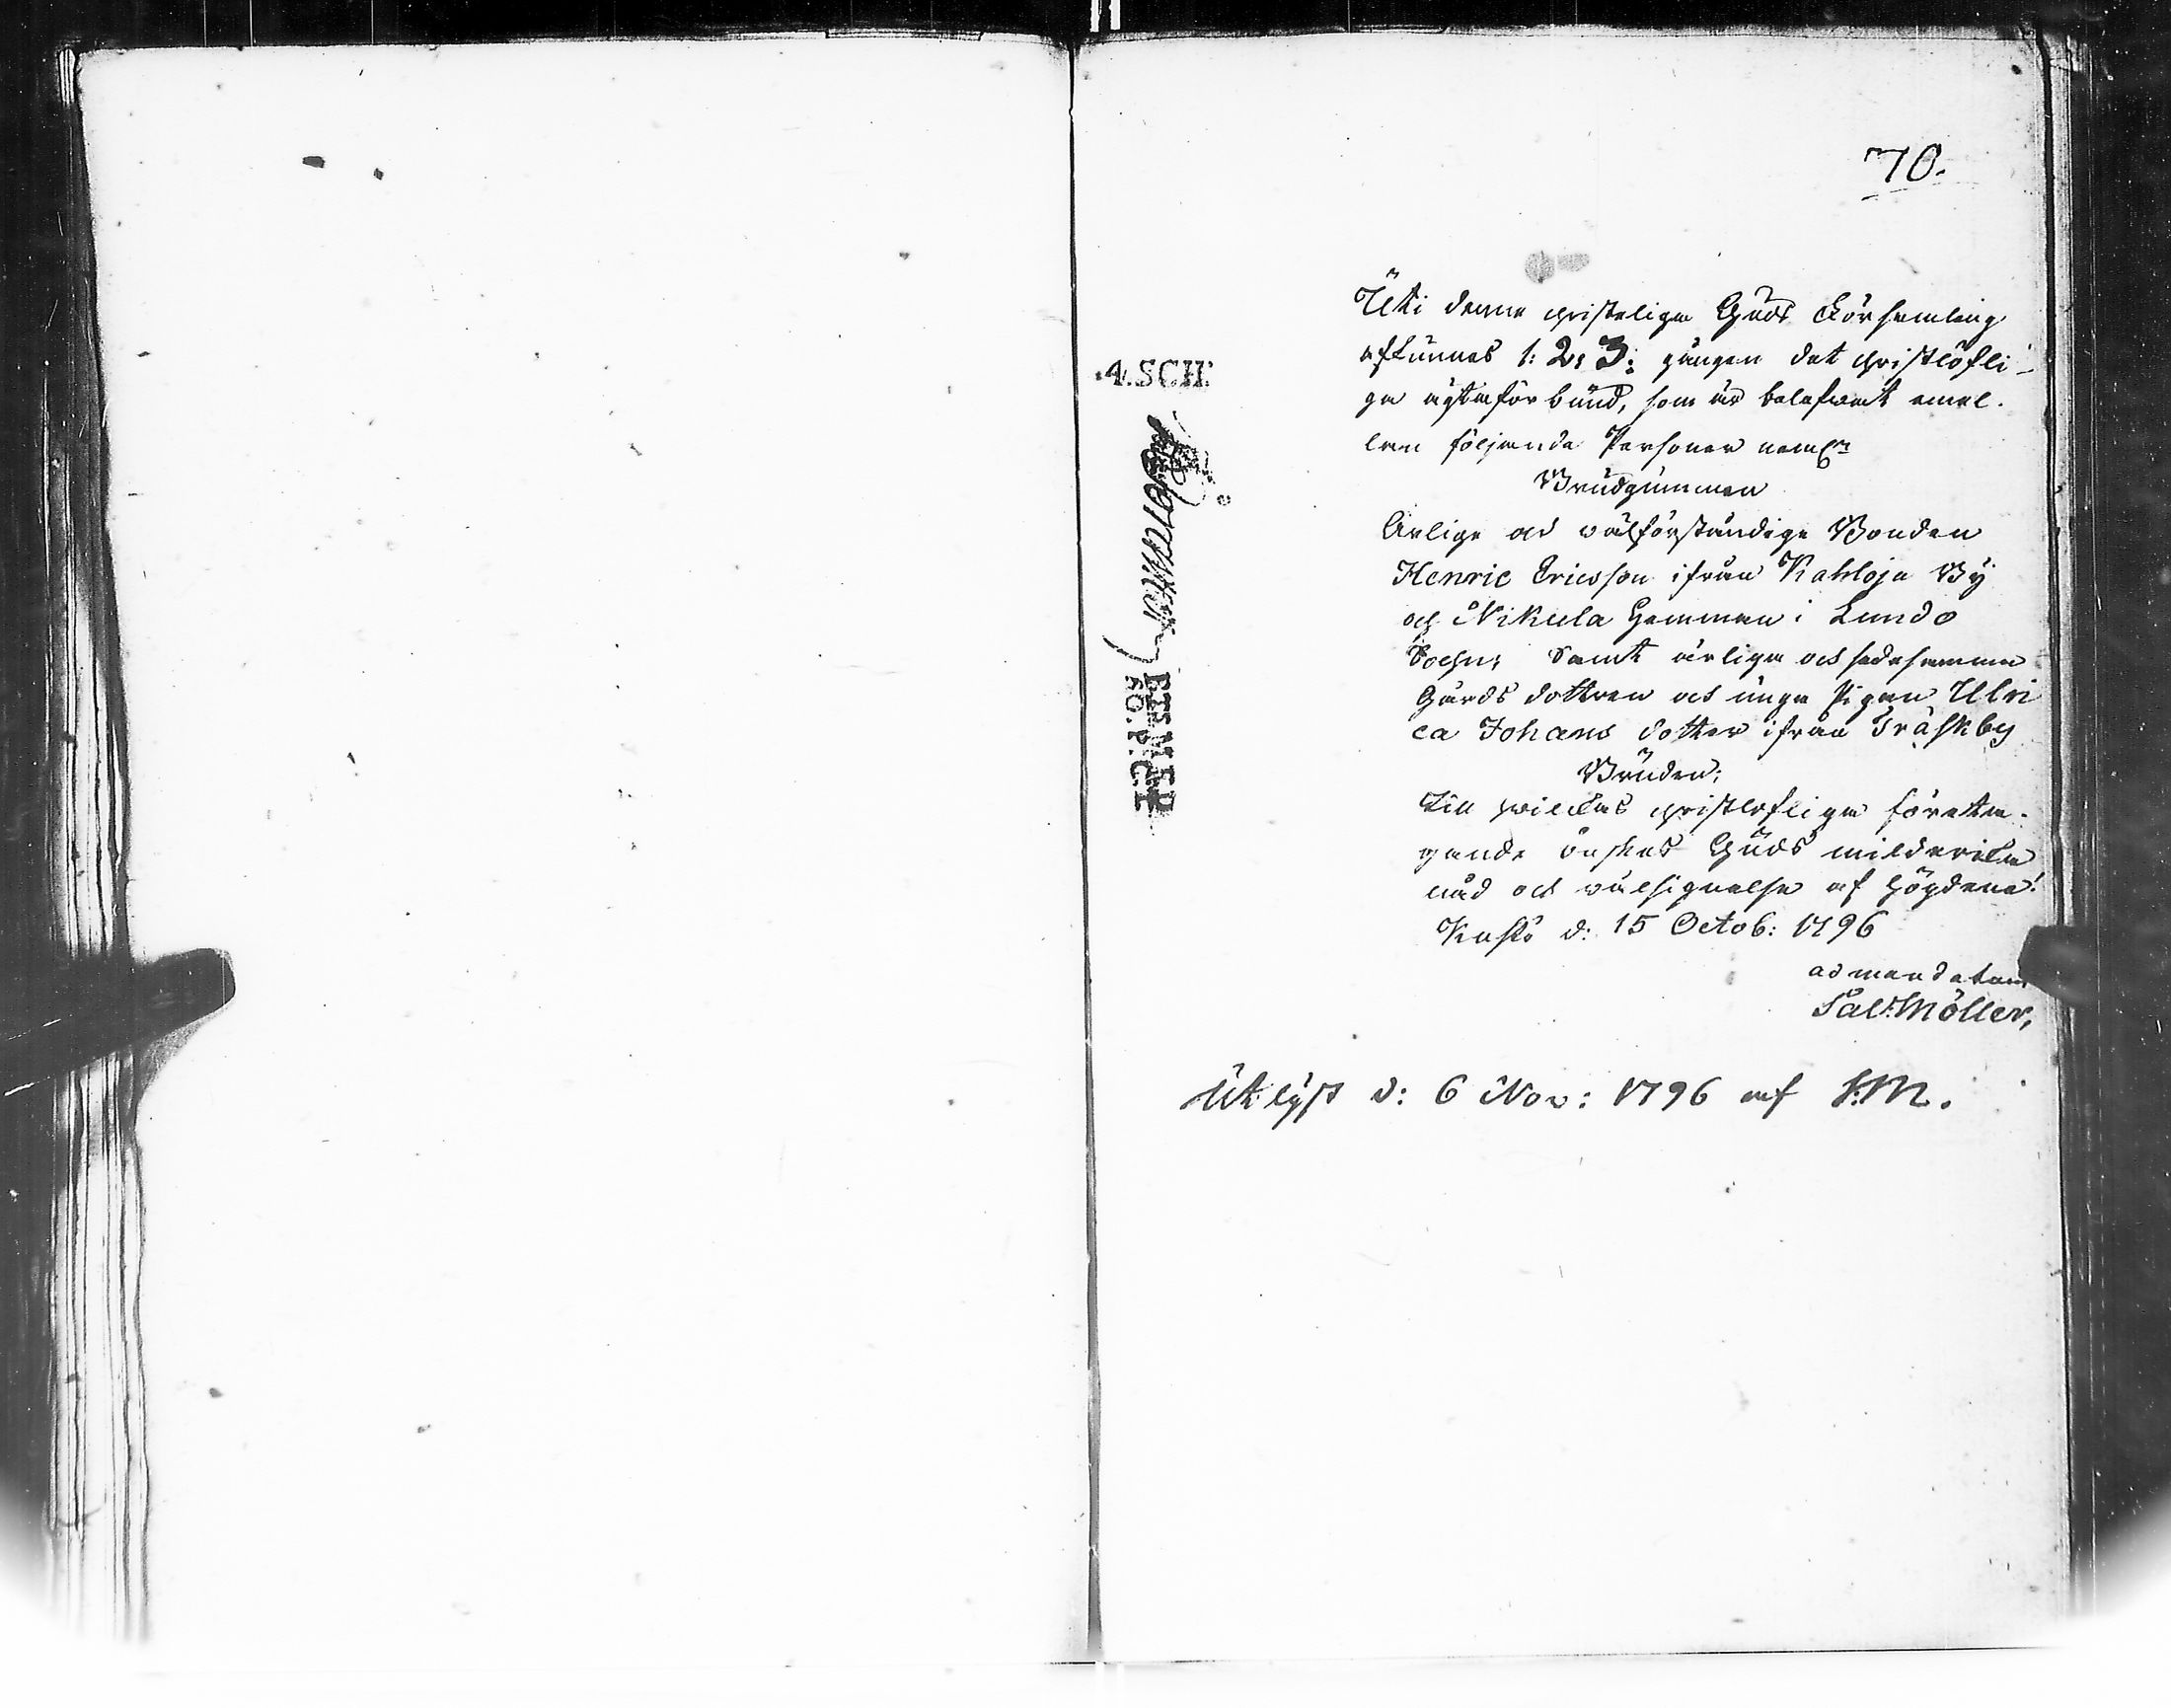 70.
Uti denna christeliga Guds Församling
afkunnas 1: 2: 3: gången det christlöfli-
ga ägtaförbund, som är belefwat emel-
lan följande Personer neml:n
Brudgummen
Ärlige och wälförståndige Bonden
Henric Ericsson ifrån Kahloja By
och Nikula Hemman i Lundo
Sochn; Samt ärliga och sedesamma
Gårds dottren och unga Pigan Ulri
ca Johans dotter ifrån Träskby
Bruden;
Till hwilkas christlofliga företa-
gande önskas Guds milderika
nåd och wälsignelse af högdene!
Kustö d: 15 Octob: 1796
ad mandatum
Sal: Möller,
Utlyst d: 6 Nov: 1796 af S:M.
4.SCH: